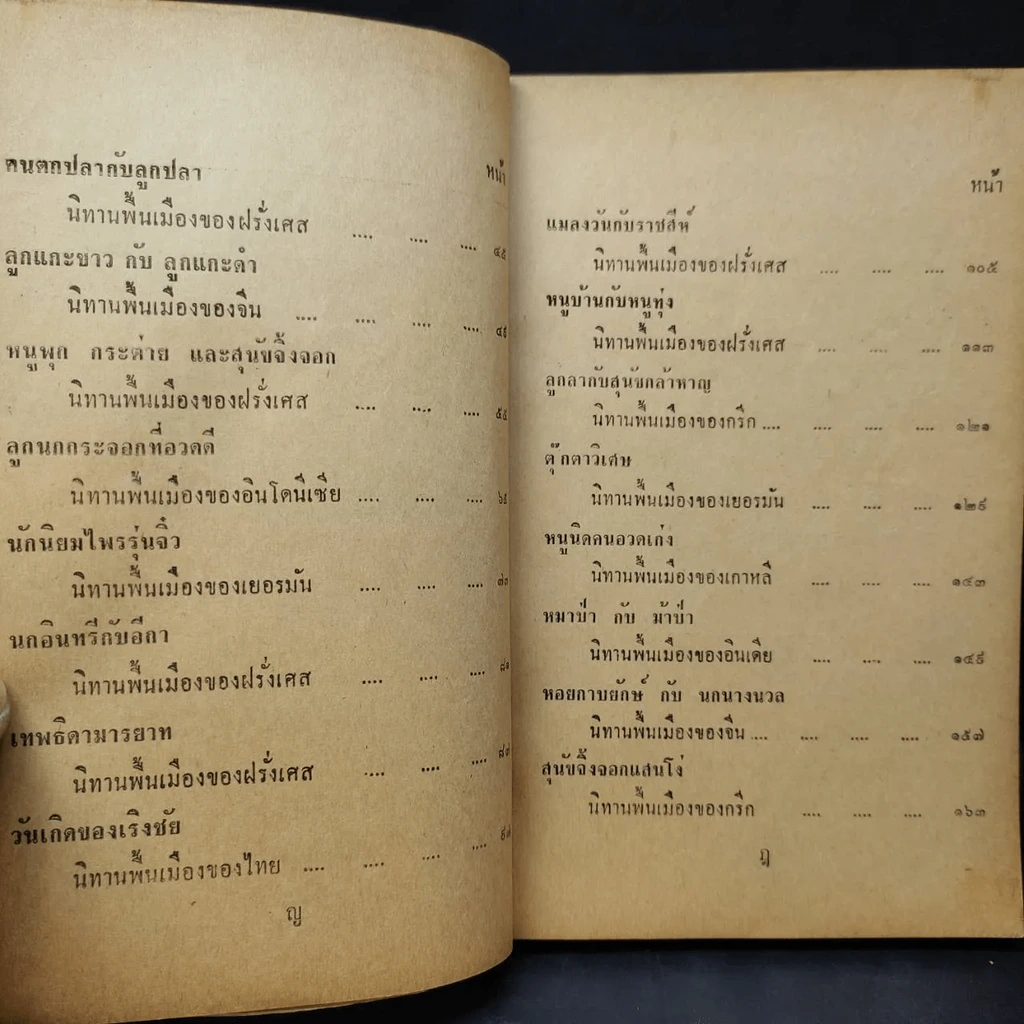 หน้า
คนตกปลากับลูกปลา
นิทานพื้นเมืองของฝรั่งเศส .... .... .... ๔๕
ลูกแกะขาว กับ ลูกแกะดำ
นิทานพื้นเมืองของจีน .... .... .... ....
หนูพุก กระต่าย และสุนัขจิ้งจอก
นิทานพื้นเมืองของฝรั่งเศส .... .... .... ๕๕
ลูกนกกระจอกที่อวดดี
นิทานพื้นเมืองของอินโดนีเซีย .... .... ....
นักนิยมไพรรุ่นจิ๋ว
นิทานพื้นเมืองของเยอรมัน .... .... ....
นกอินทรีกับอีกา
นิทานพื้นเมืองของฝรั่งเศส .... .... .... ๘๑
เทพธิดามารยาท
นิทานพื้นเมืองของฝรั่งเศส .... .... ....
วันเกิดของเริงชัย
นิทานพื้นเมืองของไทย .... .... .... ....
ญ
หน้า
แมลงวันกับราชสีห์
นิทานพื้นเมืองของฝรั่งเศส .... .... .... ๑๐๕
หนูบ้านกับหนูทุ่ง
นิทานพื้นเมืองของฝรั่งเศส .... .... .... ๑๑๓
ลูกลากับสุนัขกล้าหาญ
นิทานพื้นเมืองของกรีก .... .... .... .... ๑๒๑
ตุ๊กตาวิเศษ
นิทานพื้นเมืองของเยอรมัน .... .... .... ๑๒๙
หนูนิดคนอวดเก่ง
นิทานพื้นเมืองของเกาหลี .... .... .... ๑๔๓
หมาป่า กับ ม้าป่า
นิทานพื้นเมืองของอินเดีย .... .... .... ๑๔๙
หอยกาบยักษ์ กับ นกนางนวล
นิทานพื้นเมืองของจีน .... .... .... .... ๑๕๗
สุนัขจิ้งจอกแสนโง่
นิทานพื้นเมืองของกรีก .... .... .... ๑๖๓
ฎ